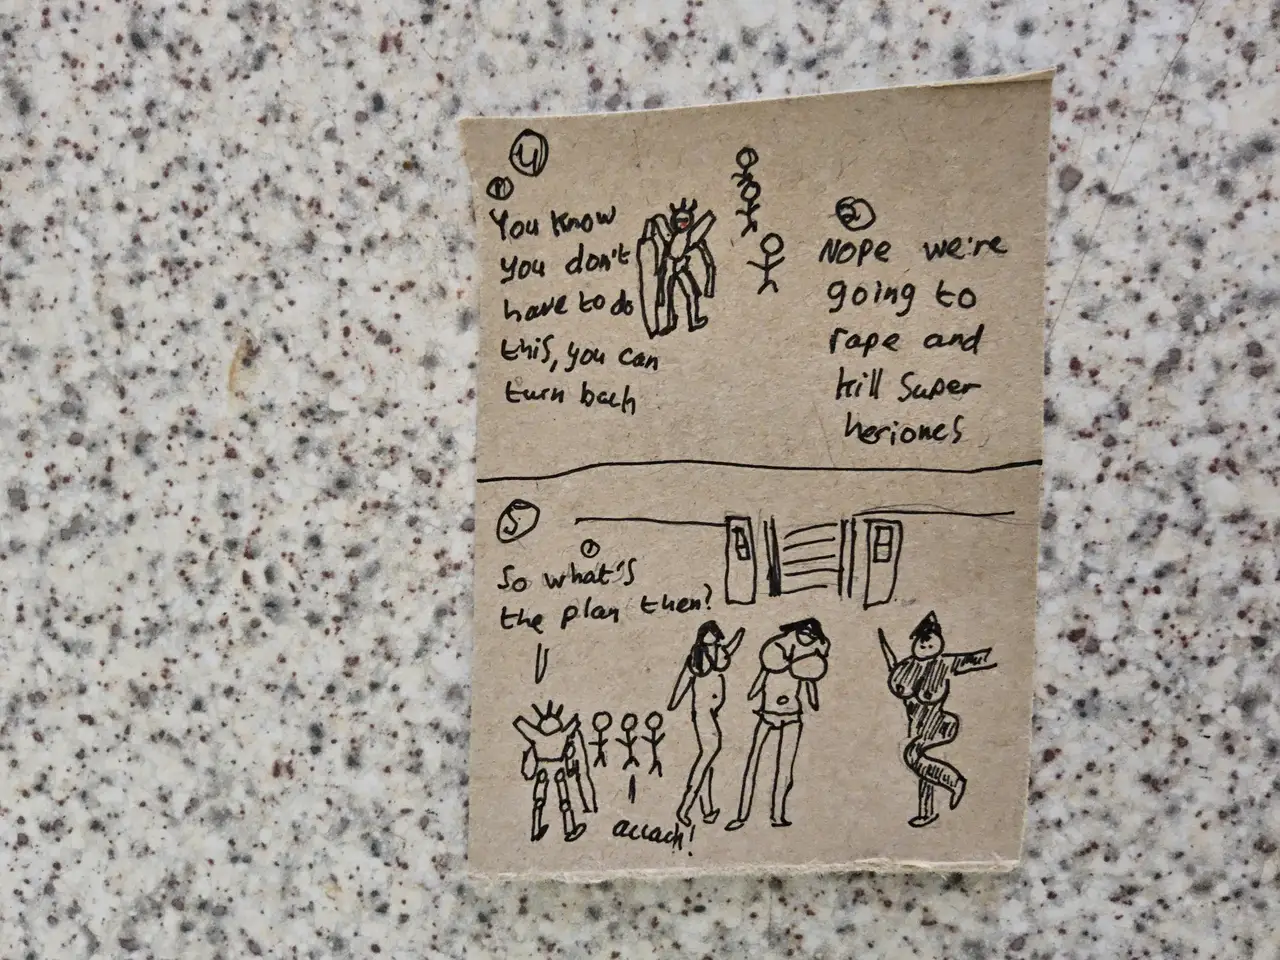 4
1
You know
you don't
have to do
this, you can
turn back
2
Nope we're
going to
rape and
kill super
heriones
5
1
So what's
the plan then?
attack!